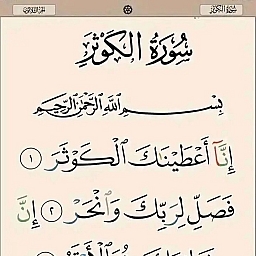 سُورَةُ الكَوْثَرِ
سُورَةُ الْكَوْثَرِ
بِسْمِ اللَّهِ الرَّحْمَٰنِ الرَّحِيمِ
إِنَّآ أَعْطَيْنَٰكَ ٱلْكَوْثَرَ ١
فَصَلِّ لِرَبِّكَ وَٱنْحَرْ ٢ إِنَّ